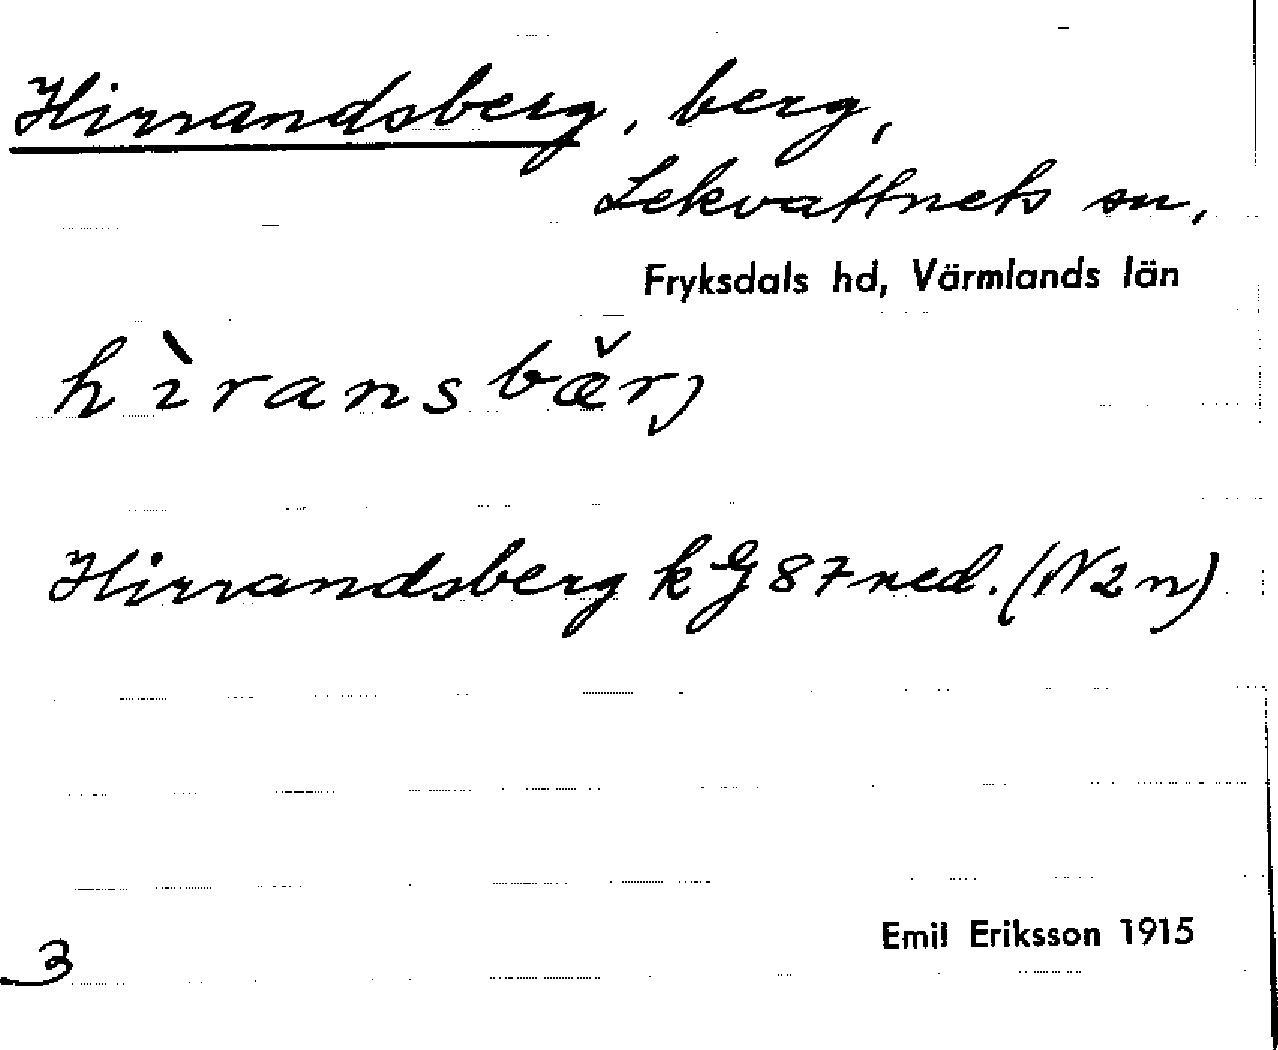 Hirrandsberg, berg,
Lekvattnets sn,
Fryksdals hd, Värmlands län
hìransbæ̌rj
Hirrandsberg k G 87 ned. (N 2 n)
Emil Eriksson 1915
3